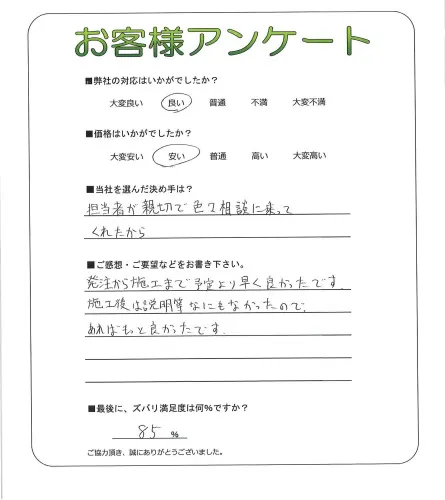 お客様アンケート
■弊社の対応はいかがでしたか?
大変良い 良い 普通 不満 大変不満
■価格はいかがでしたか?
大変安い 安い 普通 高い 大変高い
■当社を選んだ決め手は?
担当者が親切で色々相談に乗って
くれたから
■ご感想・ご要望などをお書き下さい。
発注から施工まで予定より早く良かったです。
施工後は説明等なにもなかったので、
あればもっと良かったです。
■最後に、ズバリ満足度は何%ですか?
85 %
ご協力頂き、誠にありがとうございました。